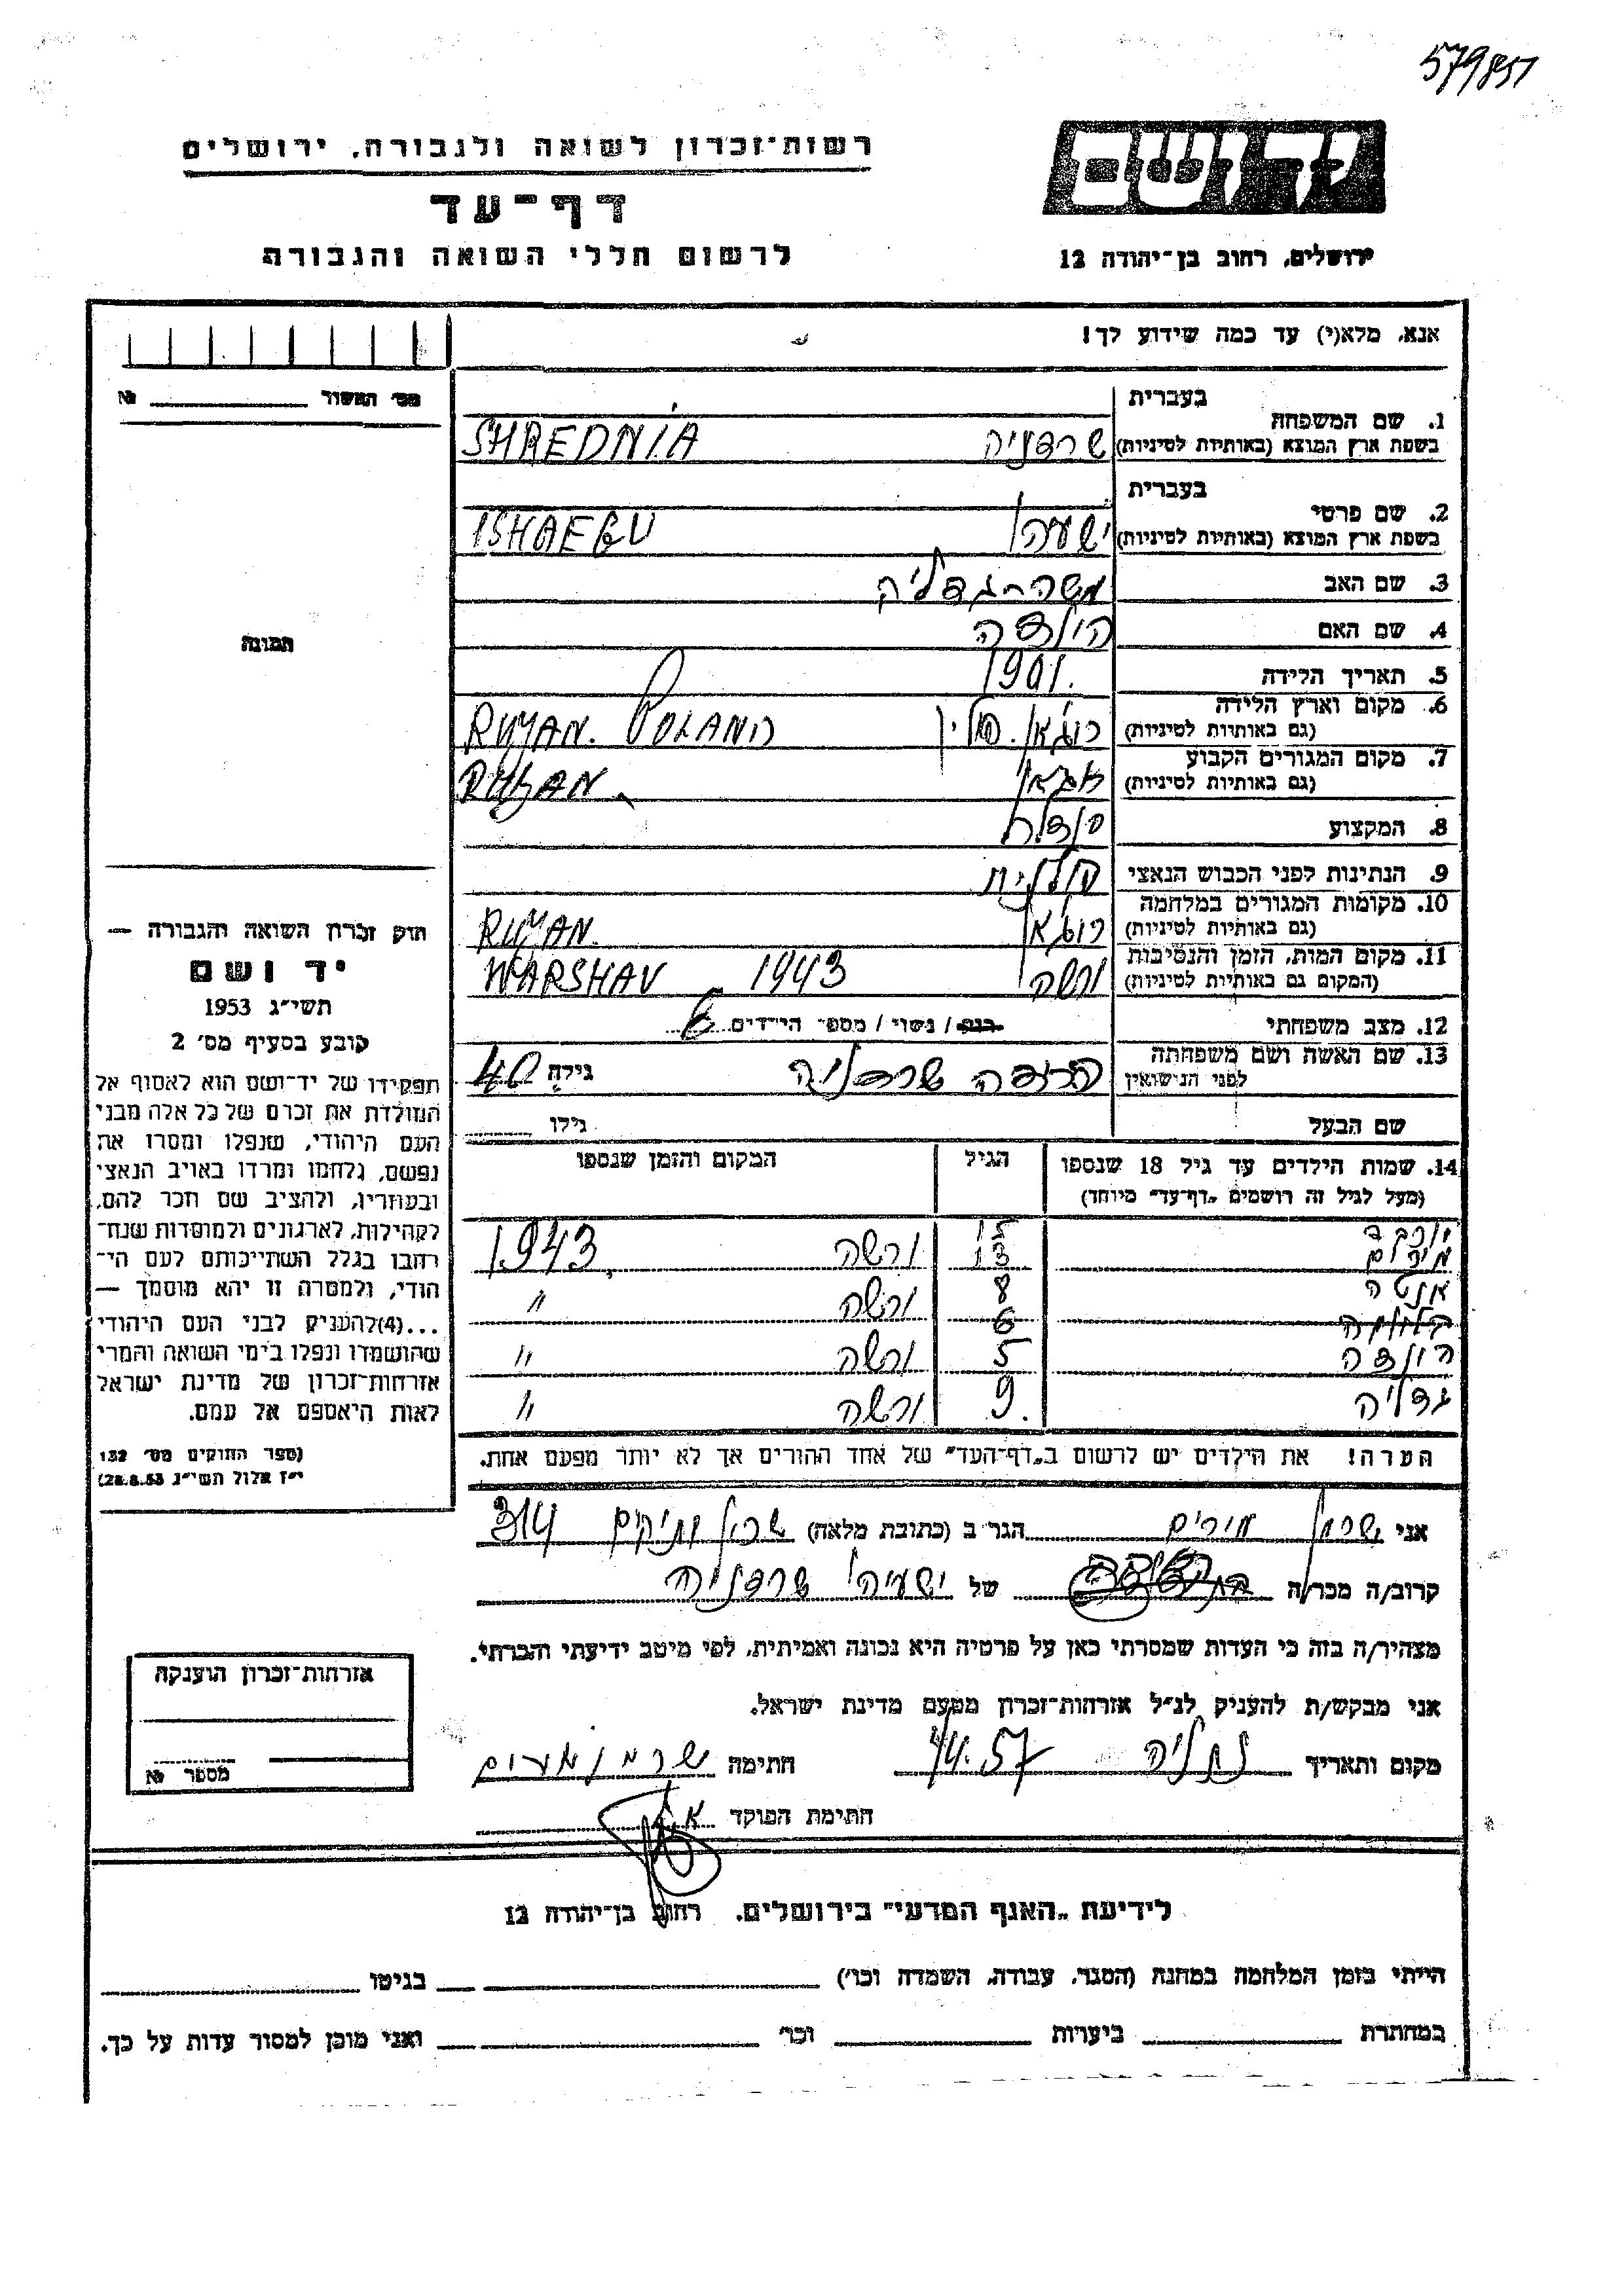 579851
רשות־זכרון לשואה ולגבורה, ירושלים
דף־עד
לרשום חללי השואה והגבורה
ירושלים, רחוב בן־יהודה 12
אנא, מלא(י) עד כמה שידוע לך!
מס' המשור №
בעברית
1. שם המשפחה
בשפת ארץ המוצא (באותיות לטיניות) שרדניה SHREDNIA
בעברית
2. שם פרטי
בשפת ארץ המוצא (באותיות לטיניות) ישעיהו
3. שם האב משה־גדליה
4. שם האם
5. תאריך הלידה 1901.
6. מקום וארץ הלידה
(גם באותיות לטיניות) רוג'אן. פולין RUYAN. POLAND
7. מקום המגורים הקבוע
(גם באותיות לטיניות) RUYAN.
8. המקצוע סנדלר
9. הנתינות לפני הכבוש הנאצי פולנית
10. מקומות המגורים במלחמה
(גם באותיות לטיניות) רוג'אן RUYAN.
11. מקום המות, הזמן והנסיבות
(המקום גם באותיות לטיניות) ורשה 1943 WARSHAV
12. מצב משפחתי רוק / נשוי / מספר הילדים 6
13. שם האשה ושם משפחתה
לפני הנישואין שרדניה גילה 40
שם הבעל גילו
14. שמות הילדים עד גיל 18 שנספו הגיל המקום והזמן שנספו
(מעל לגיל זה רושמים „דף־עד" מיוחד)
יוכבד 15
מרים 13 ורשה 1943.
8 ורשה "
6
5 ורשה "
גדליה 9. ורשה "
הערה! את הילדים יש לרשום ב„דף־העד" של אחד ההורים אך לא יותר מפעם אחת.
תמונה
חוק זכרון השואה והגבורה —
יד ושם
תשי"ג 1953
קובע בסעיף מס' 2
תפקידו של יד־ושם הוא לאסוף אל
המולדת את זכרם של כל אלה מבני
העם היהודי, שנפלו ומסרו את
נפשם, נלחמו ומרדו באויב הנאצי
ובעוזריו, ולהציב שם וזכר להם,
לקהילות, לארגונים ולמוסדות שנח־
רחבו בגלל השתייכותם לעם הי־
הודי, ולמטרה זו יהא מוסמך —
...(4) להעניק לבני העם היהודי
שהושמדו ונפלו בימי השואה והמרי
אזרחות־זכרון של מדינת ישראל
לאות היאספם אל עמם.
(ספר החוקים מס' 132
י"ז אלול תשי"ג 28.8.53)
אני שרמן מירים הגר ב (כתובת מלאה) שכון ותיקים 314
קרוב/ה מכר/ה של ישעיהו שרדניה
מצהיר/ה בזה כי העדות שמסרתי כאן על פרטיה היא נכונה ואמיתית, לפי מיטב ידיעתי והכרתי.
אני מבקש/ת להעניק לנ"ל אזרחות־זכרון מטעם מדינת ישראל.
מקום ותאריך נתניה 57 חתימה שרמן מרים
חתימת הפוקד
אזרחות־זכרון הוענקה
מספר №
לידיעת „האגף המדעי" בירושלים. רחוב בן־יהודה 12
הייתי בזמן המלחמה במחנה (הסגר, עבודה, השמדה וכו') בגיטו
במחתרת ביערות וכו' ואני מוכן למסור עדות על כך.